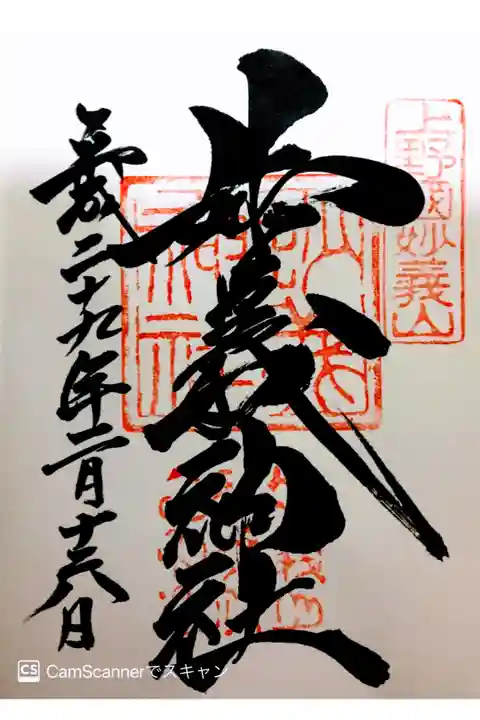 上野國妙義山
妙義神社
平成二十九年二月十六日
CS CamScannerでスキャン